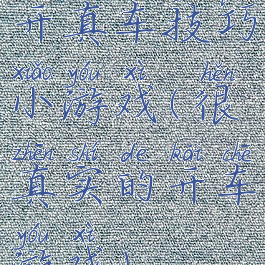 开真车技巧
xiǎo yóu xì hěn
小游戏(很
zhēn shí de kāi chē
真实的开车
yóu xì
游戏)